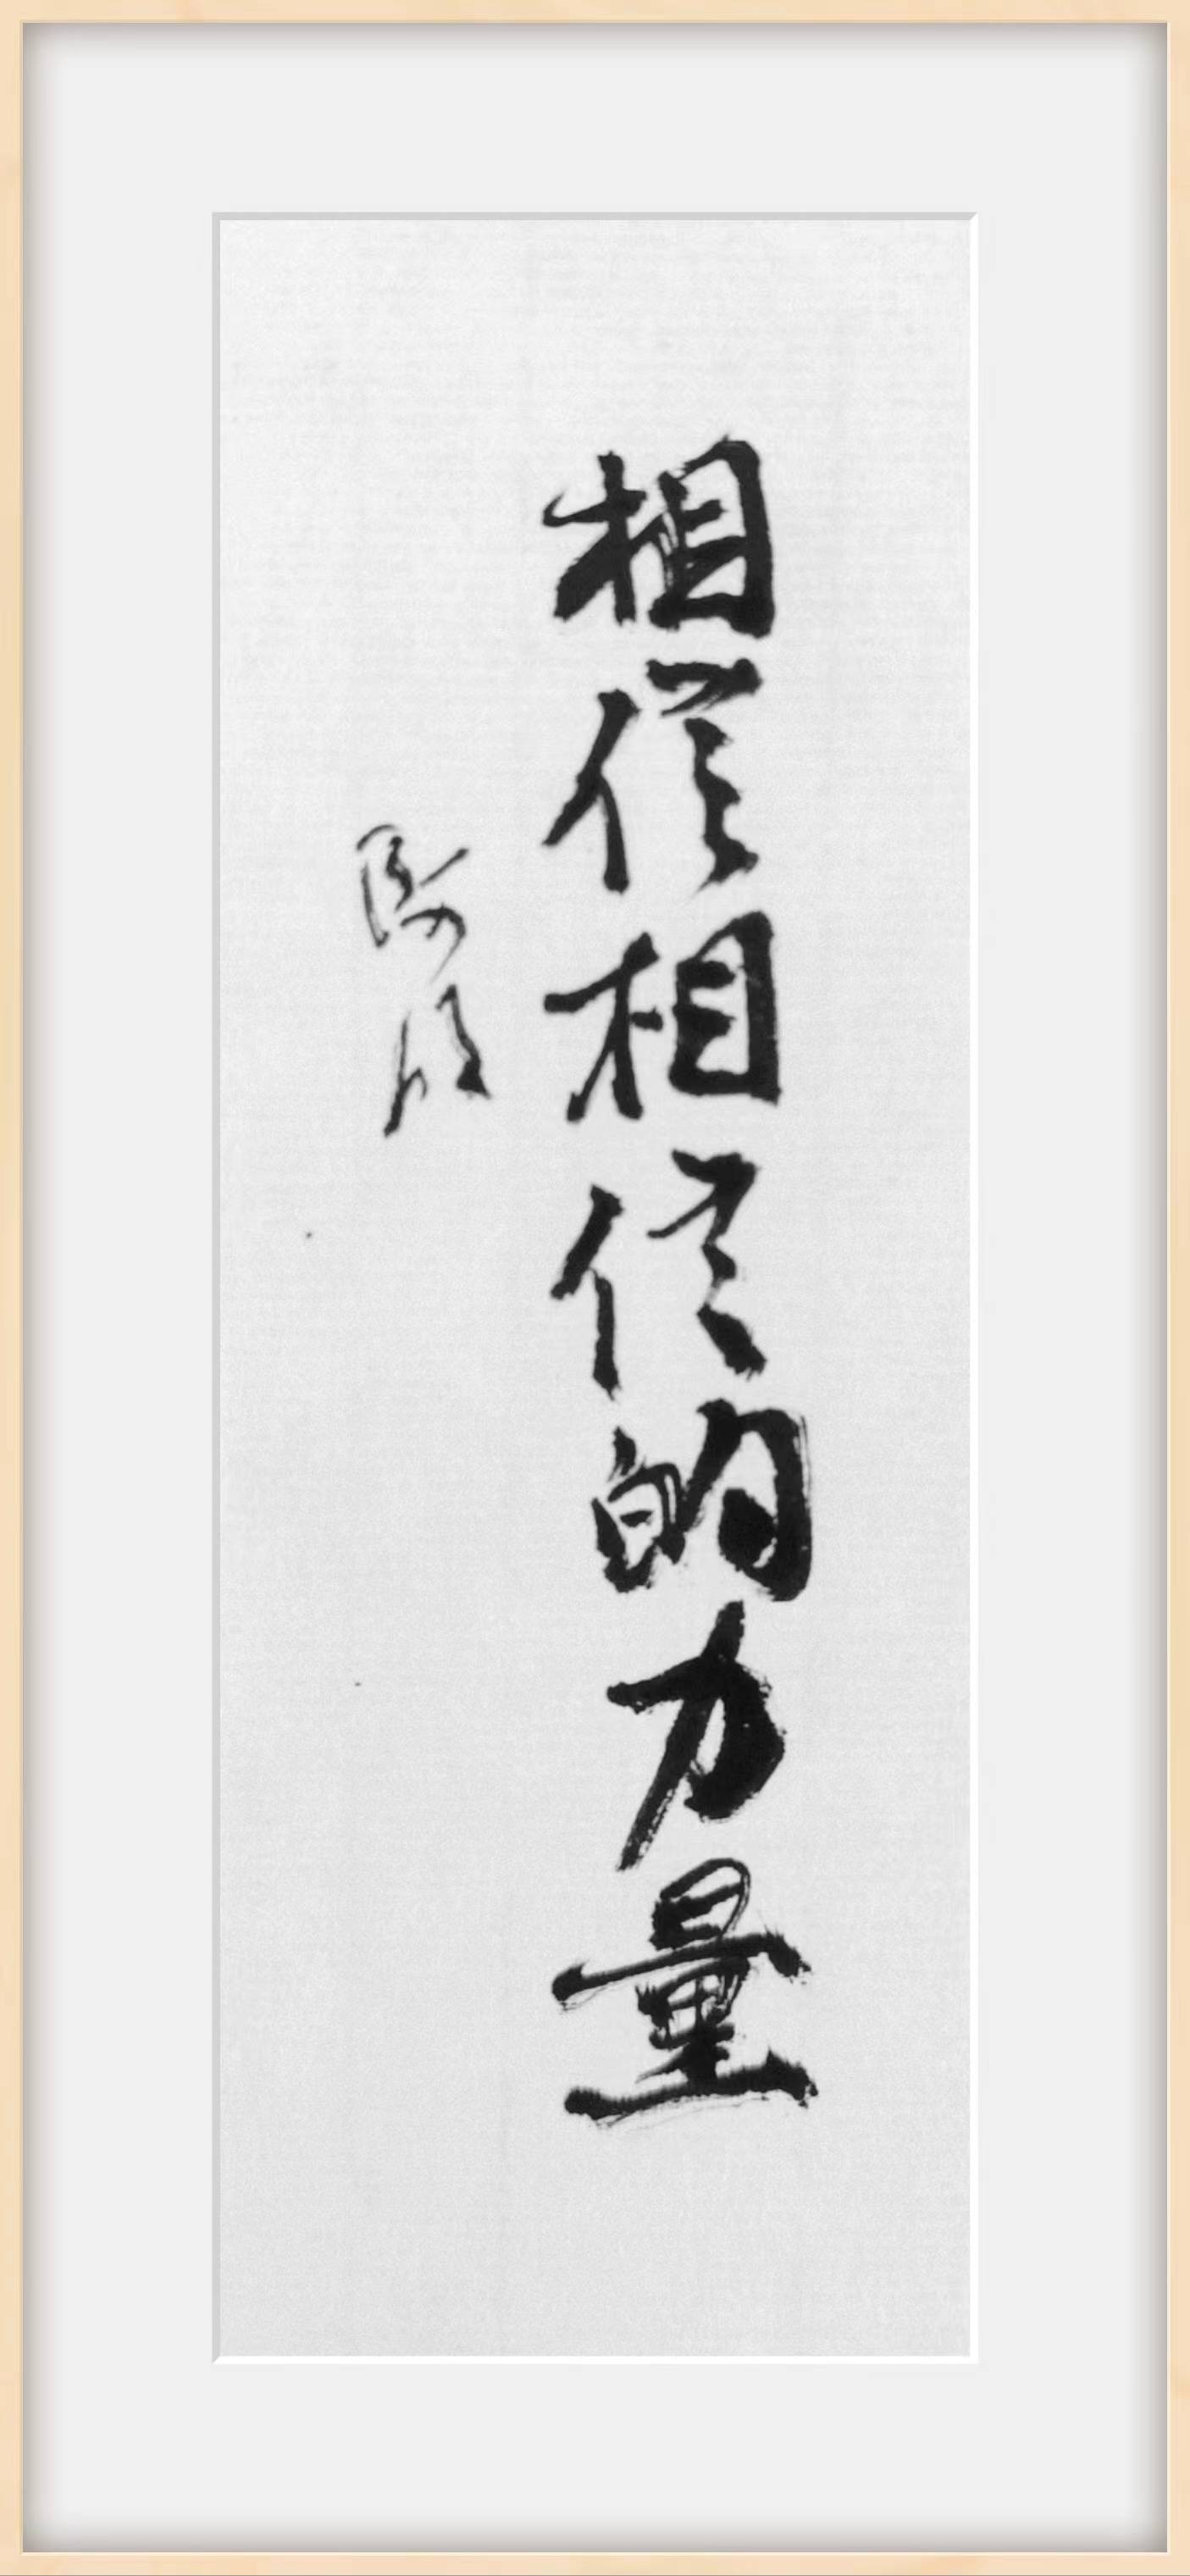 相信相信的力量